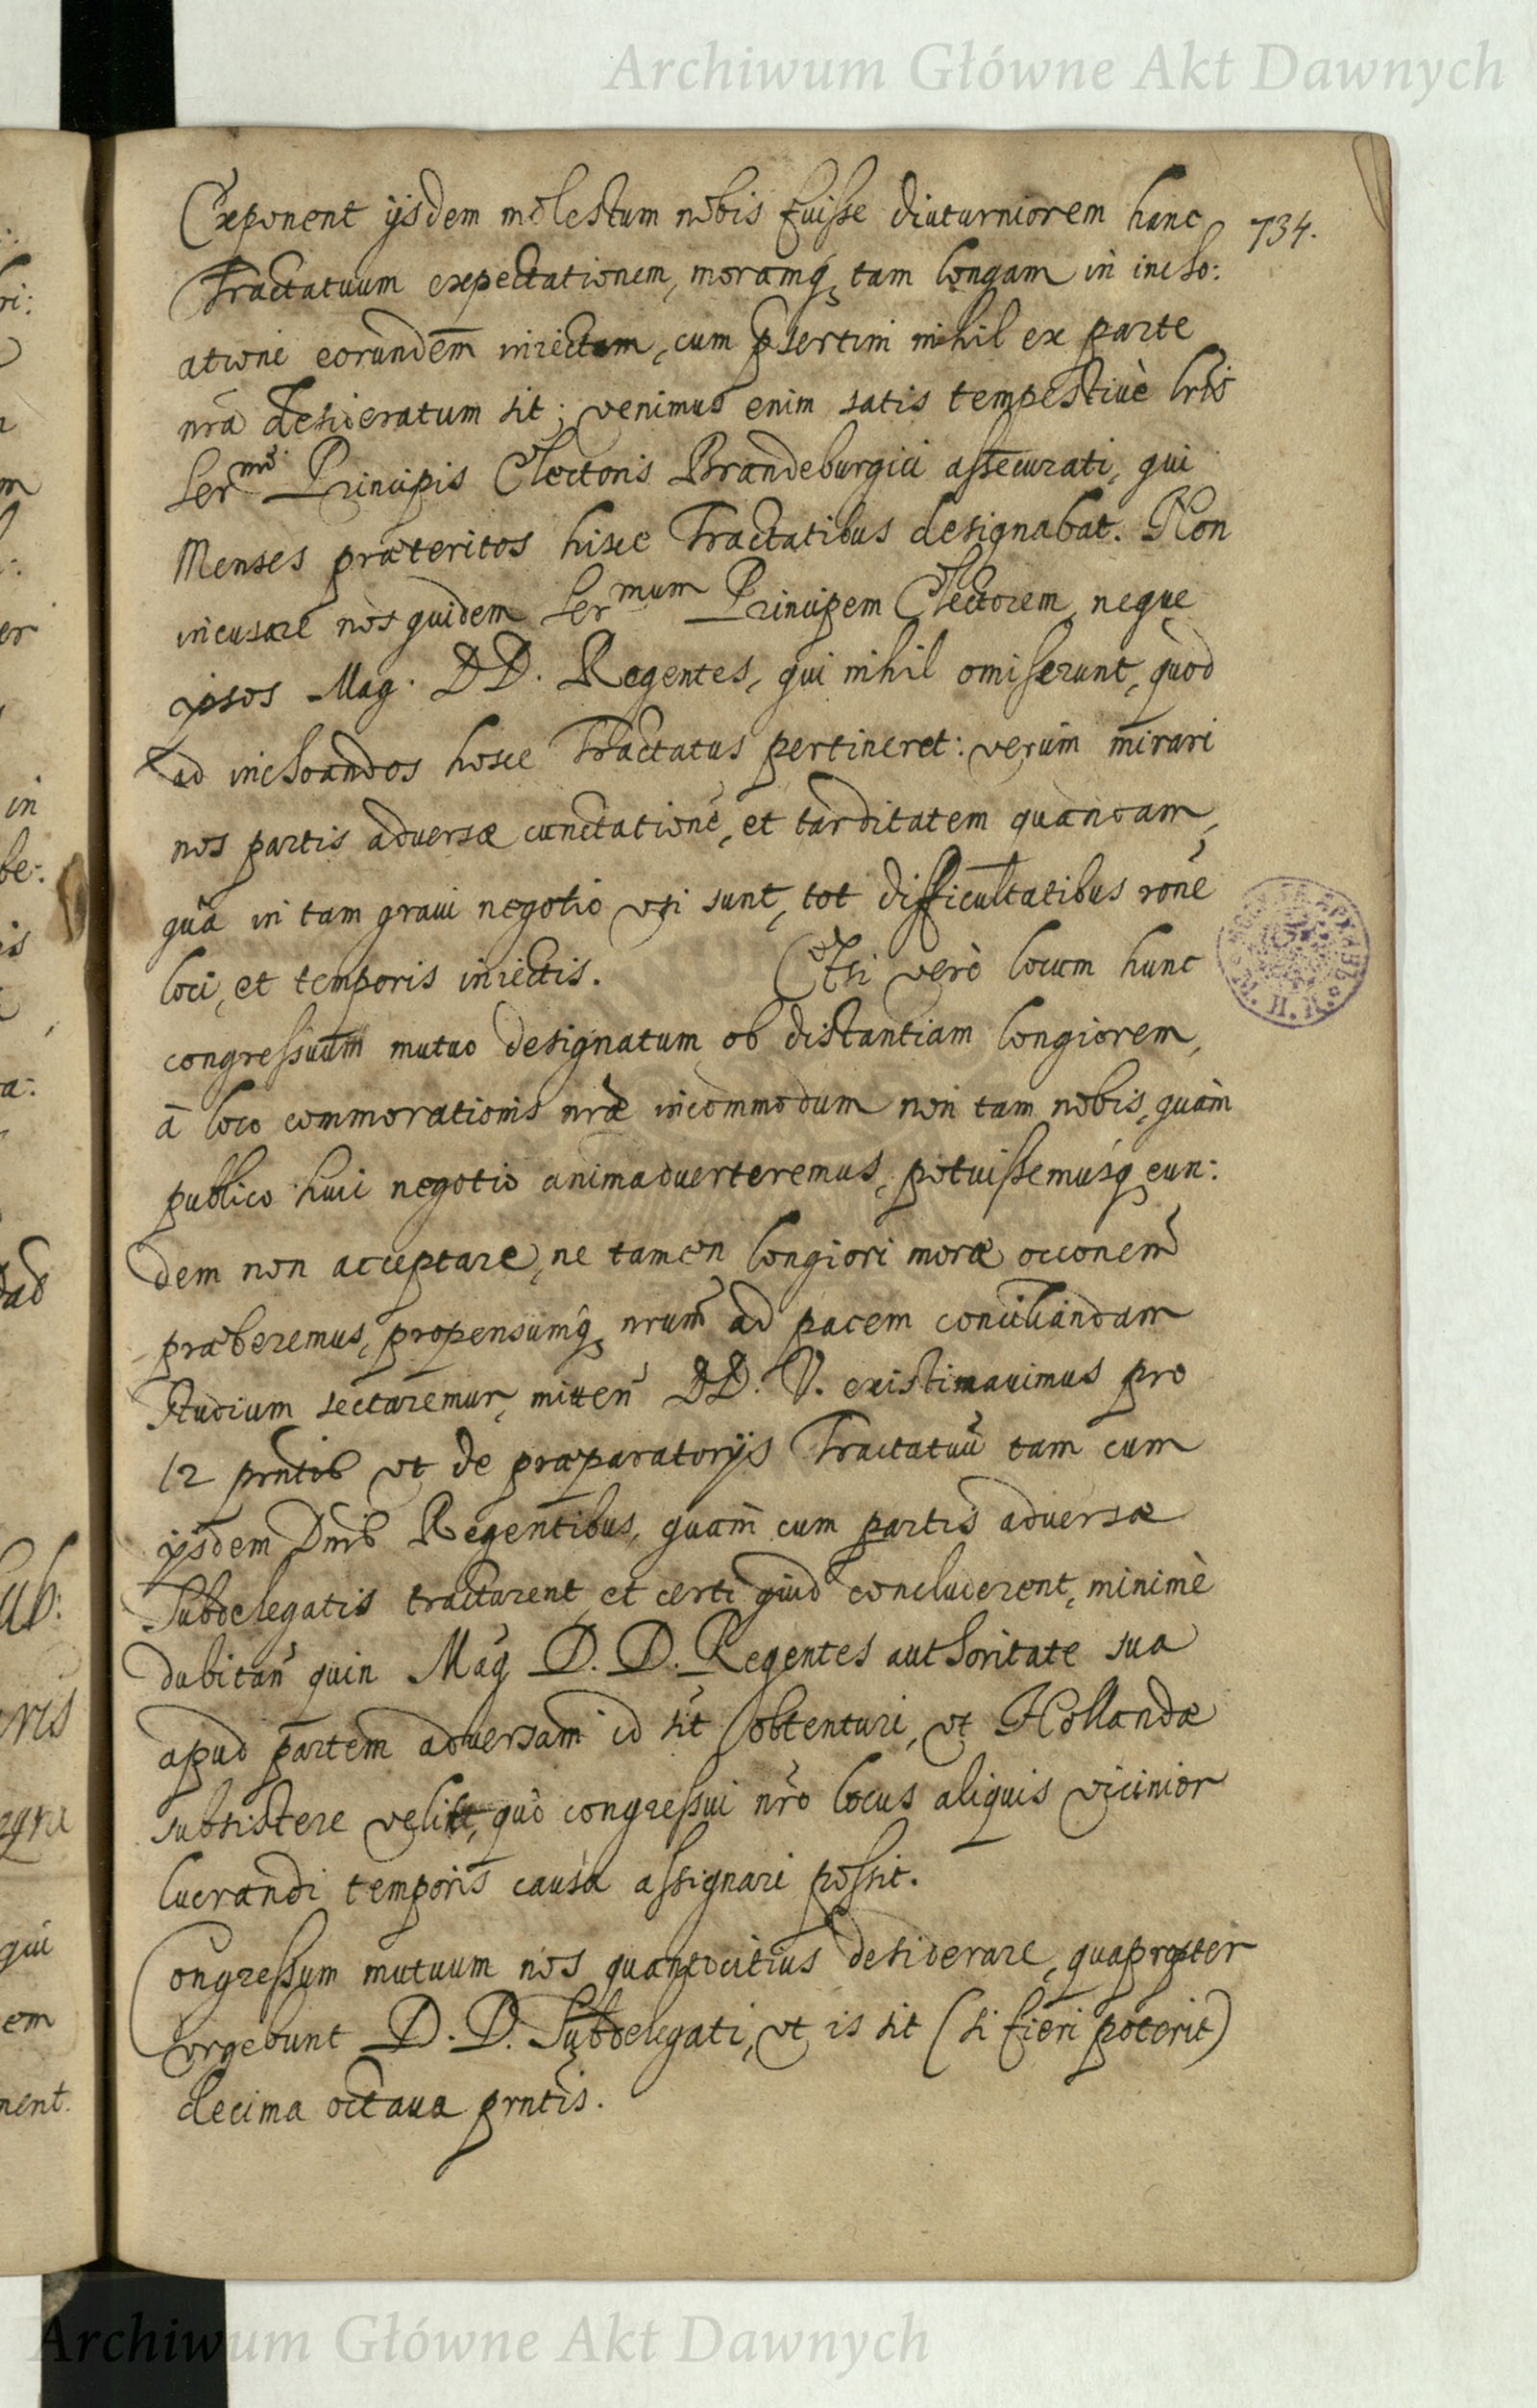 Archiwum Główne Akt Dawnych
Exponent ijsdem molestum nobis fuisse diuturniorem hanc
734.
Tractatuum expectationem, moramq́ tam longam in incho:
atione eorundem iniectam, cum p̄sertim nihil ex parte
nrã desideratum sit; venimus enim satis tempestiuè lrĩs
Sermĩ Principis Electoris Brandeburgici assecurati, qui
Menses præteritos hisce Tractatibus designabat. Non
incusare nos quidem Sermum Principem Electorem, neque
ipsos Mag. DD. Regentes, qui nihil omiserunt, quod
ad inchoandos hosce Tractatus pertineret: verùm mirari
nos partis aduersæ cunctationẽ, et tarditatem quandam,
quâ in tam graui negotio vsi sunt, tot difficultatibus ronẽ
loci, et temporis iniectis. Etsi verò locum hunc
congressuum mutuo designatum ob distantiam longiorem,
à loco commorationis nræ̃ incommodum non tam nobis, quàm
publico huic negotio animaduerteremus, potuissemusq́ eun:
dem non acceptare, ne tamen longiori moræ occonem̃
præberemus, propensumq́ nrum̃ ad pacem conciliandam
Studium sectaremur, mitten̄ DD. V. existimauimus pro
12 prñtis vt de præparatorijs Tractatuũ tam cum
ijsdem Dnĩs Regentibus, quam cum partis aduersæ
Subdelegatis tractarent, et certi quid concluderent, minimè
dubitan̄ quin Mag̃ D. D. Regentes authoritate sua
apud partem aduersam id sĩt obtenturi, vt Hollandæ
subsistere velit, quò congressui nrõ locus aliquis vicinior
lucrandi temporis causa assignari possit.
Congressum mutuum nos quantocitius desiderare, quapropter
vrgebunt D. D. Subdelegati, vt is sit (si fieri poterit)
decima octaua prñtis.
Archiwum Główne Akt Dawnych